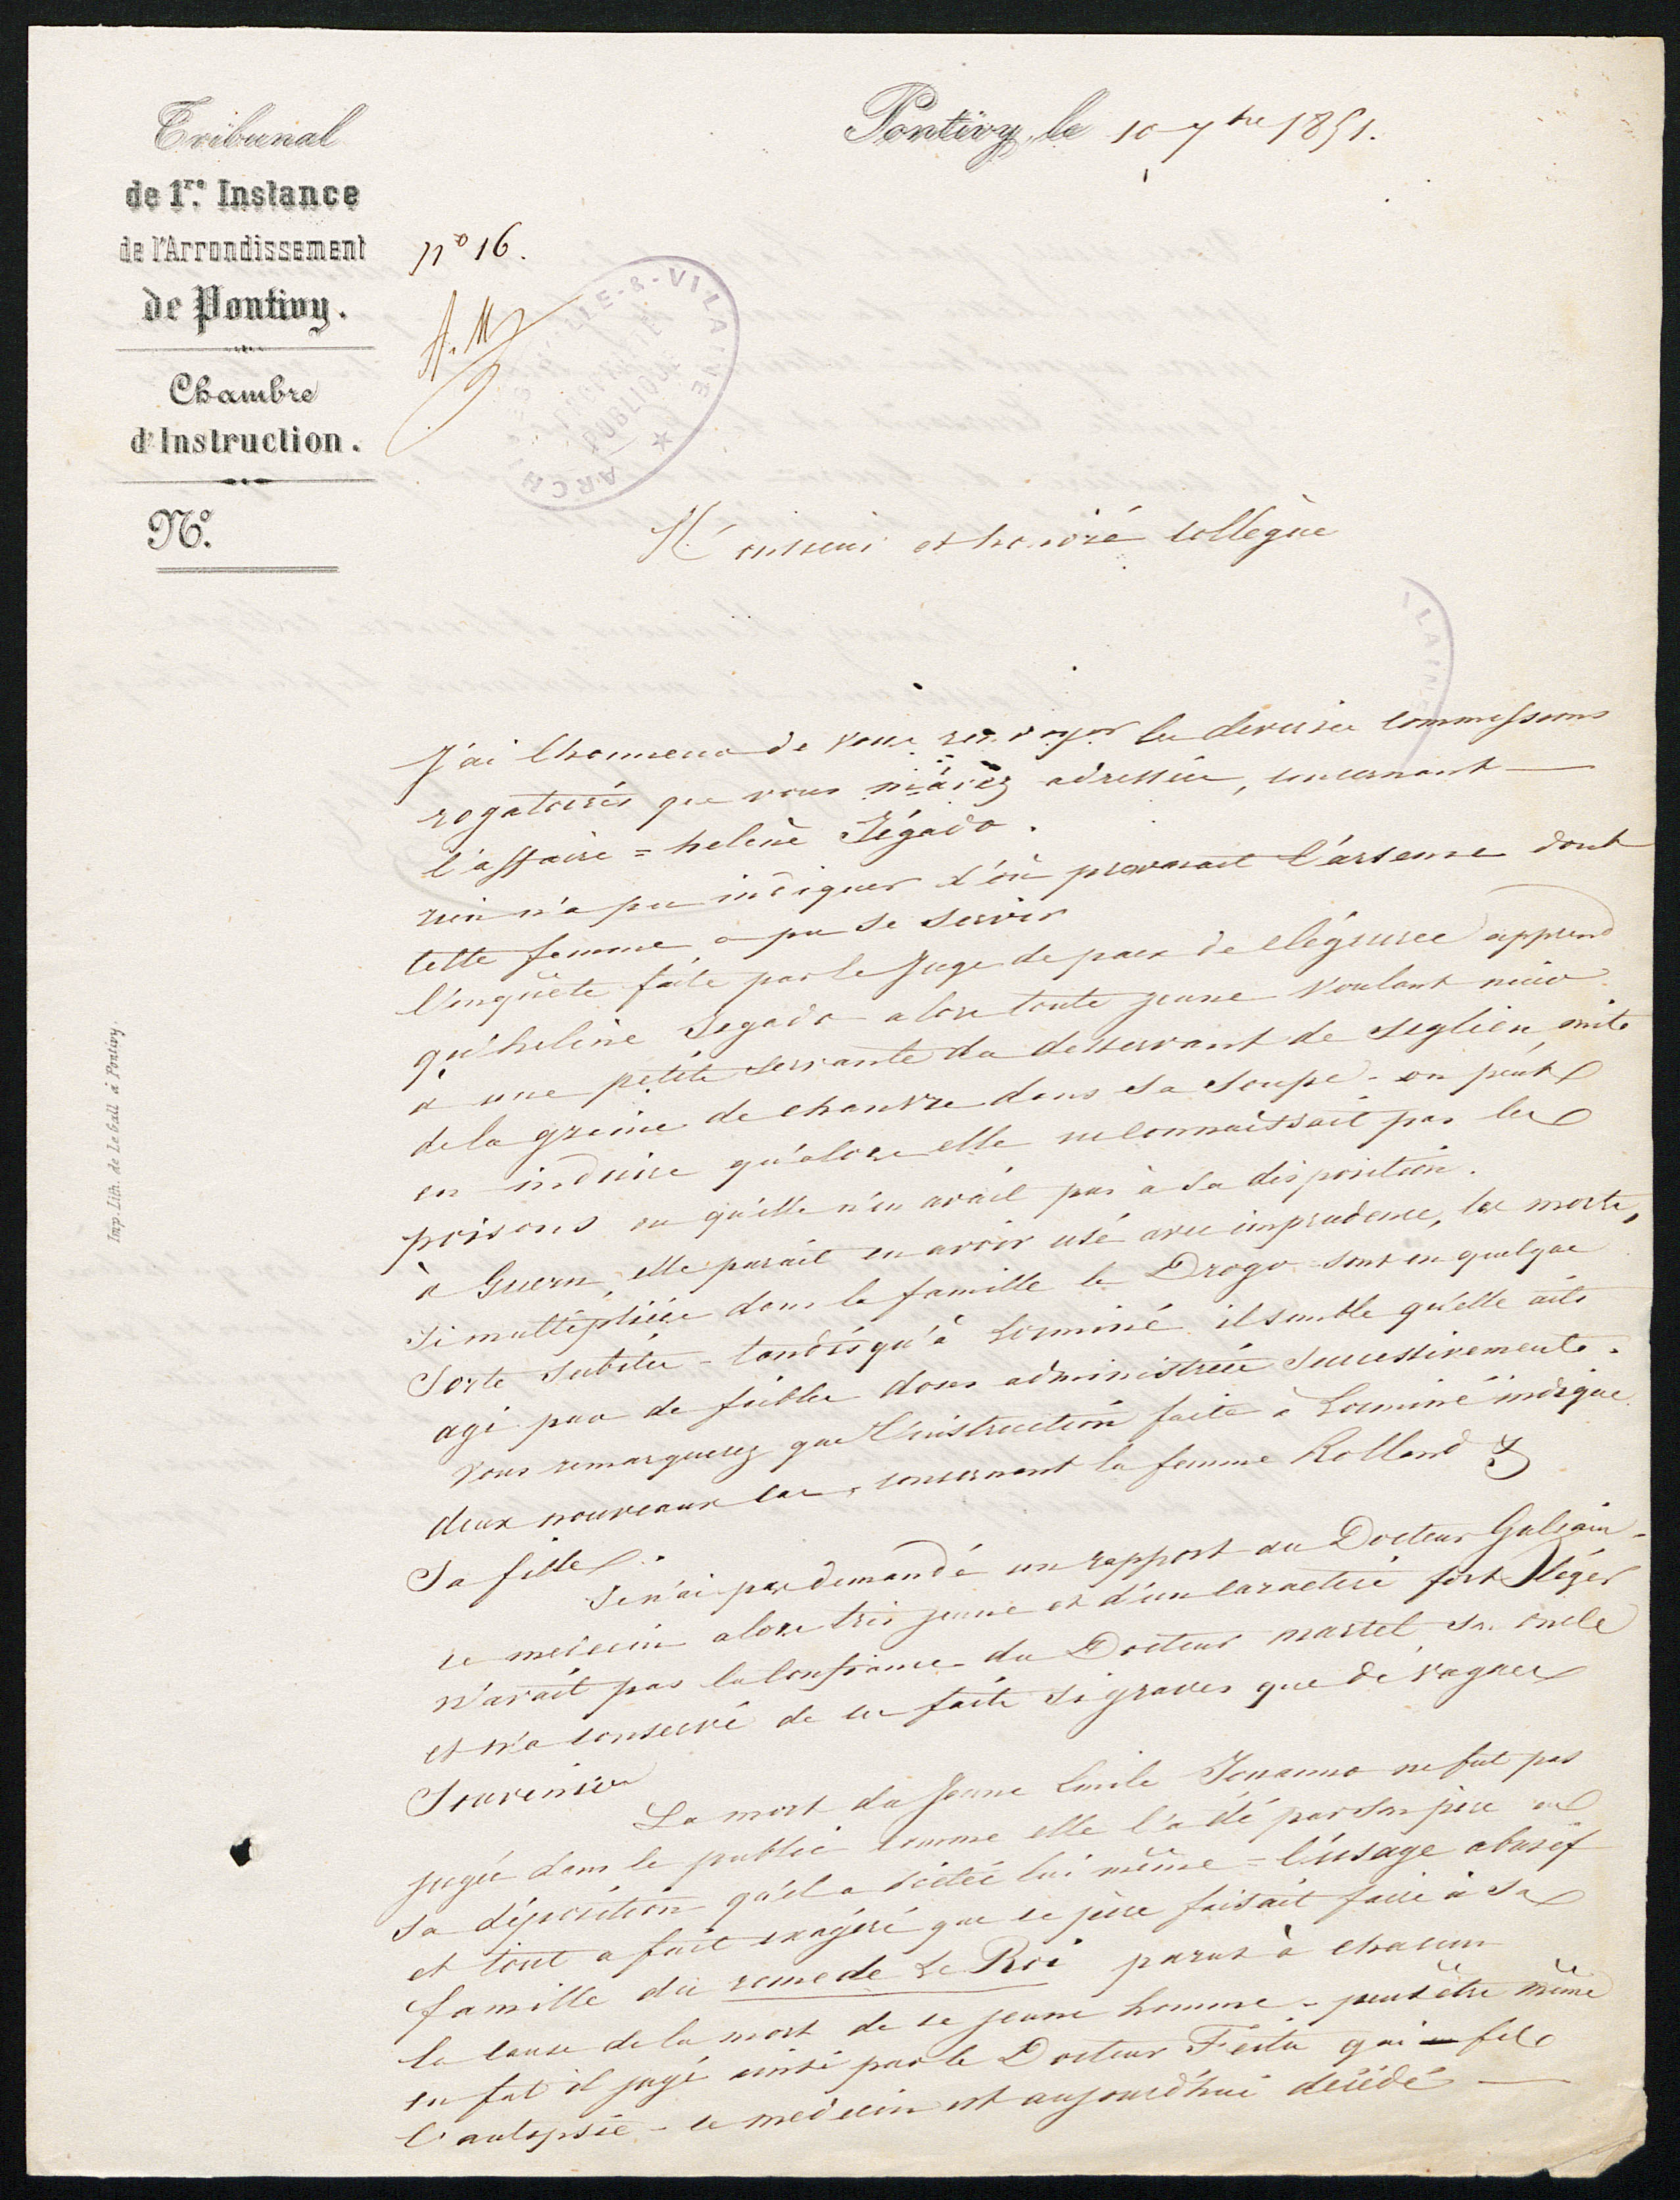 Tribunal
de 1re. Instance
de l'Arrondissement
de Pontivy.
Chambre
d'Instruction.
No.
Pontivy, le 10 7bre 1851.
no 16.
A. M
ARCHIVES D'ILLE-&-VILAINE
PROPRIÉTÉ
PUBLIQUE
VILAINE
Imp. Lith. de Le Gall à Pontivy.
Monsieur et honoré collègue
J'ai l'honneur de vous renvoyer les dernières commissions
rogatoires que vous m'avez adressées, concernant
l'affaire = helène Jégado.
rien n'a pu indiquer d'où provenait l'arsenic dont
cette femme a pu se servir
l'enquête faite par le juge de paix de Cléguerec apprend
qu'helène Jegado alors toute jeune voulant nuire
à une petite servante du desservant de Séglien, mit
de la graine de chanvre dans sa soupe - on peut
en induire qu'alors elle ne connaissait pas les
poisons ou qu'elle n'en avait pas à sa disposition.
à Guern, elle parait en avoir usé avec imprudence, les morts,
si multipliées dans la famille le Drogo sont en quelque
sorte subites - tandis qu'à Locminé il semble qu'elle ait
agi par de faibles doses administrées successivement.
vous remarquerez que l'instruction faite à Locminé indique
deux nouveaux cas, concernant la femme Rolland &
sa fille.
Je n'ai pas demandé un rapport au Docteur Galzain -
ce médecin alors très jeune et d'un caractère fort léger
n'avait pas la confiance du Docteur martel, son oncle
et n'a conservé de ces faits si graves que de vagues
souvenirs
La mort du jeune Emile Jouanno ne fut pas
jugée dans le public comme elle l'a été par son père en
sa déposition qu'il a dictée lui même = l'usage abusif
et tout a fait exagéré que ce père faisait faire à sa
famille du remede Le Roi parut à chacun
la cause de la mort de ce jeune homme - peut être même
en fut il jugé ainsi par le Docteur Festu qui fit
l'autopsie - ce medecin est aujourd'hui décédé